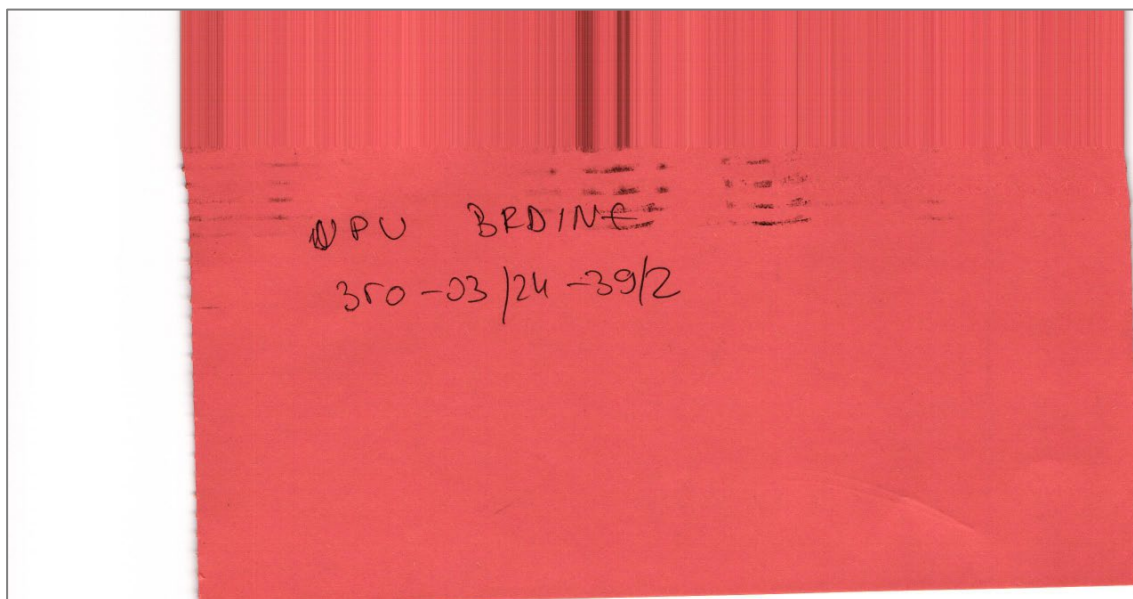 UPU BRDINE
350-03/24-39/2